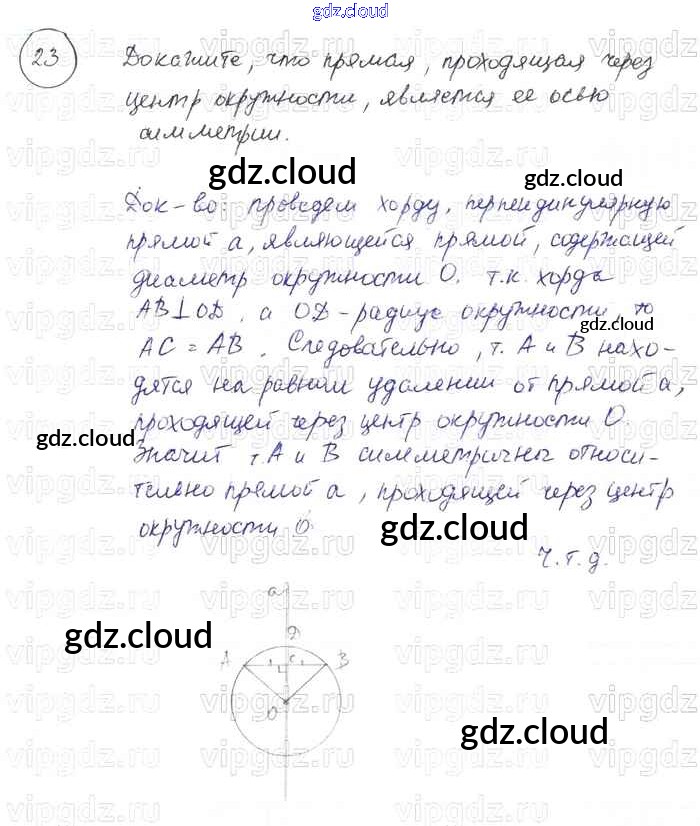 gdz.cloud
23 Докажите, что прямая, проходящая через
центр окружности, является ее осью
симметрии.
gdz.cloud
gdz.cloud
Док-во: проведем хорду, перпендикулярную
прямой a, являющейся прямой, содержащей
диаметр окружности O. т.к. хорда
AB⊥OD, а OD-радиус окружности, то
gdz.cloud
AC = AB. Следовательно, т. A и B нахо-
дятся на равном удалении от прямой a,
проходящей через центр окружности O.
gdz.cloud
Значит т. A и B симметричны относи-
тельно прямой a, проходящей через центр
окружности O.
gdz.cloud
ч.т.д.
a
gdz.cloud
D
A C B
O
gdz.cloud
vipgdz.ru